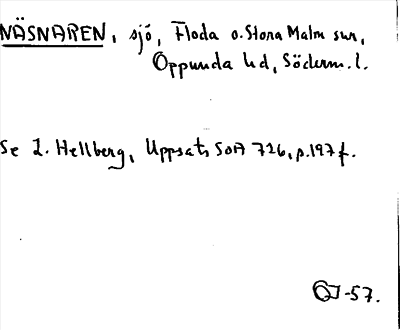 NÄSNAREN, sjö, Floda o. Stora Malm snr,
Oppunda hd, Söderm. l.
Se L. Hellberg, Uppsats SOA 726, p. 197 f.
-57.